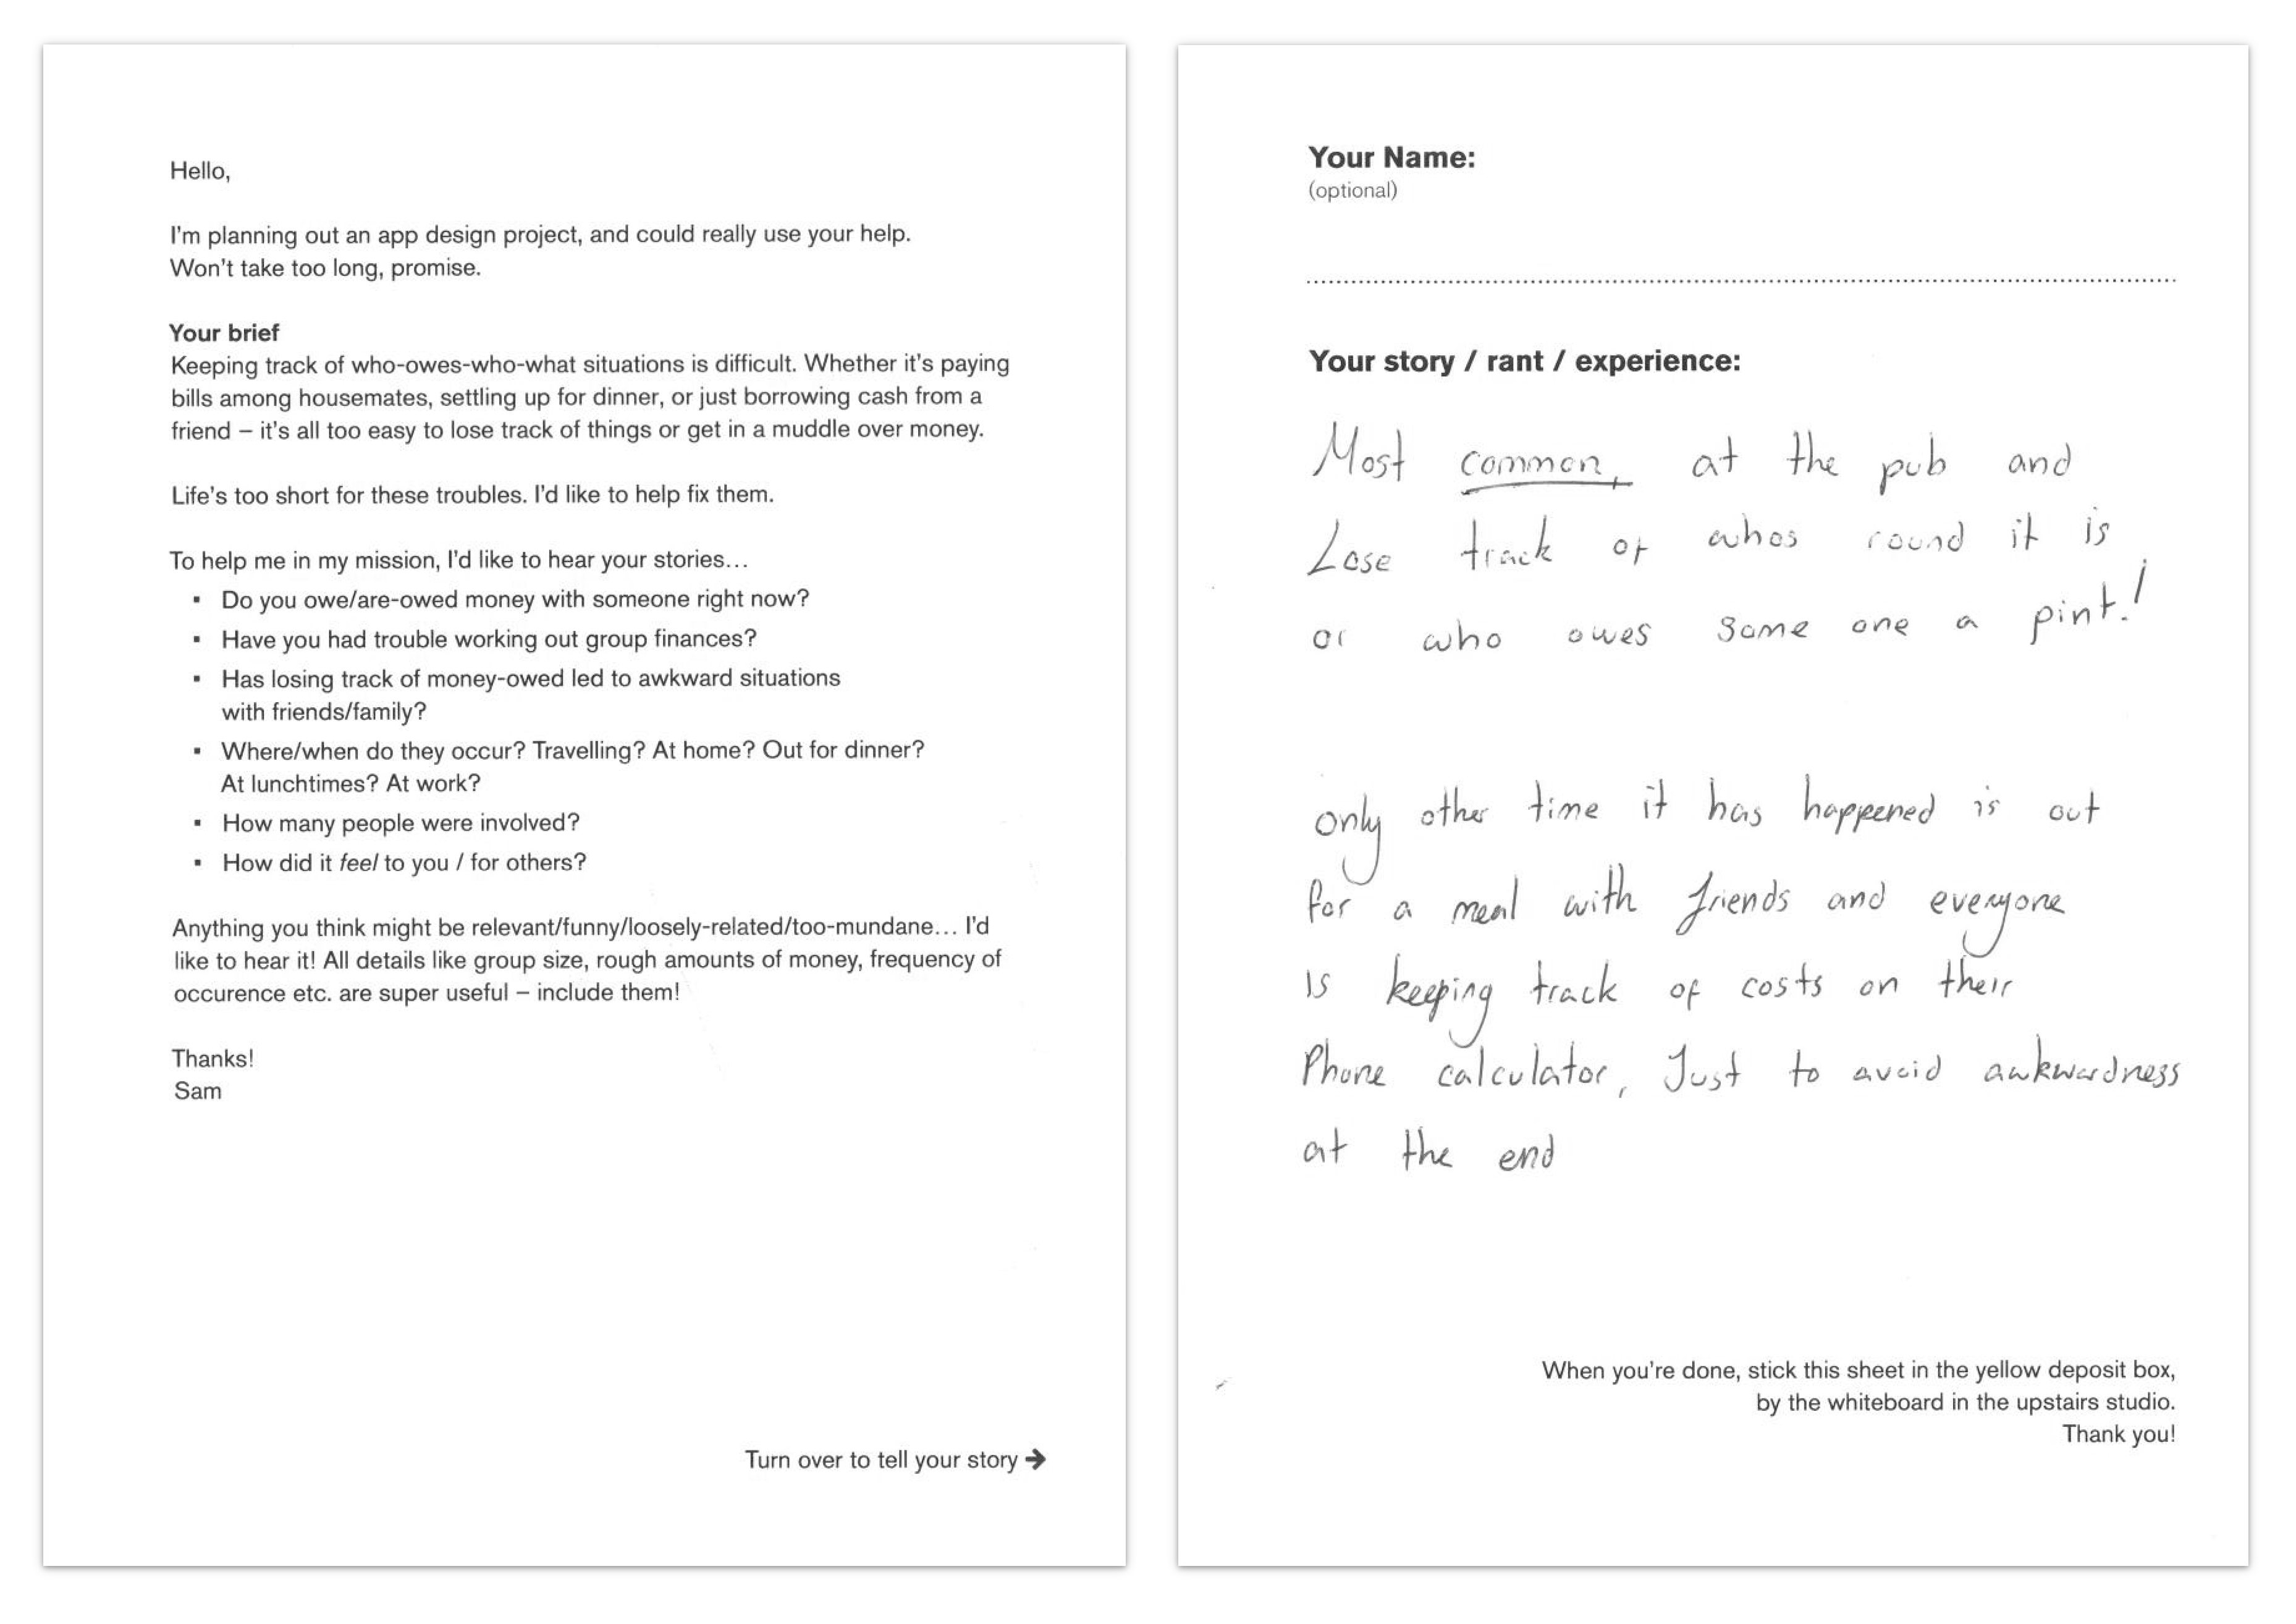 Hello,
I'm planning out an app design project, and could really use your help.
Won't take too long, promise.
Your brief
Keeping track of who-owes-who-what situations is difficult. Whether it's paying
bills among housemates, settling up for dinner, or just borrowing cash from a
friend – it's all too easy to lose track of things or get in a muddle over money.
Life's too short for these troubles. I'd like to help fix them.
To help me in my mission, I'd like to hear your stories…
▪ Do you owe/are-owed money with someone right now?
▪ Have you had trouble working out group finances?
▪ Has losing track of money-owed led to awkward situations
with friends/family?
▪ Where/when do they occur? Travelling? At home? Out for dinner?
At lunchtimes? At work?
▪ How many people were involved?
▪ How did it feel to you / for others?
Anything you think might be relevant/funny/loosely-related/too-mundane… I'd
like to hear it! All details like group size, rough amounts of money, frequency of
occurence etc. are super useful – include them!
Thanks!
Sam
Turn over to tell your story →
Your Name:
(optional)
Your story / rant / experience:
Most common, at the pub and
Lose track of whos round it is
or who owes some one a pint!
only other time it has happened is out
for a meal with friends and everyone
is keeping track of costs on their
Phone calculator, Just to avoid awkwardness
at the end
When you're done, stick this sheet in the yellow deposit box,
by the whiteboard in the upstairs studio.
Thank you!